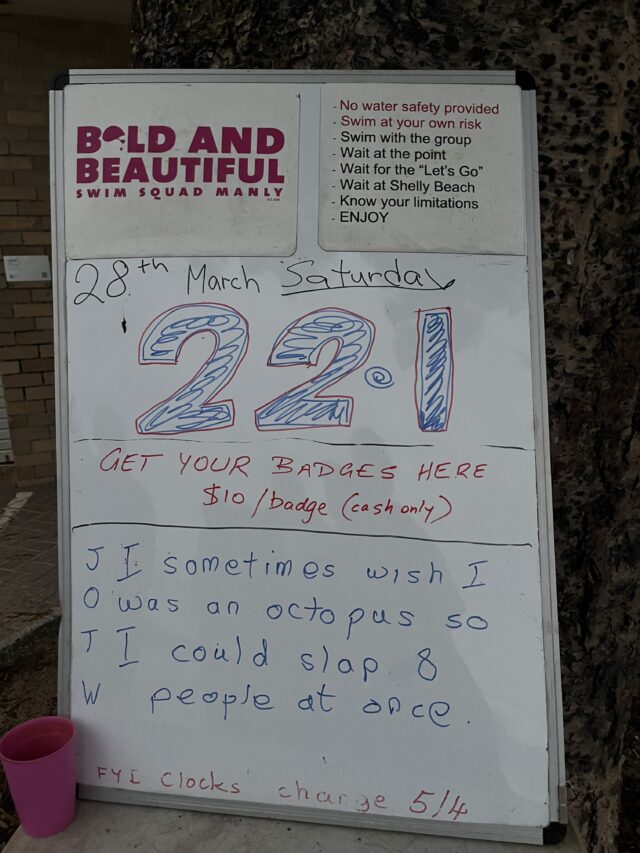 BOLD AND
BEAUTIFUL
SWIM SQUAD MANLY
- No water safety provided
- Swim at your own risk
- Swim with the group
- Wait at the point
- Wait for the "Let's Go"
- Wait at Shelly Beach
- Know your limitations
- ENJOY
28th March Saturday
22.1
GET YOUR BADGES HERE
$10/badge (cash only)
J I sometimes wish I
O was an octopus so
T I could slap 8
W people at once.
FYI Clocks change 5/4